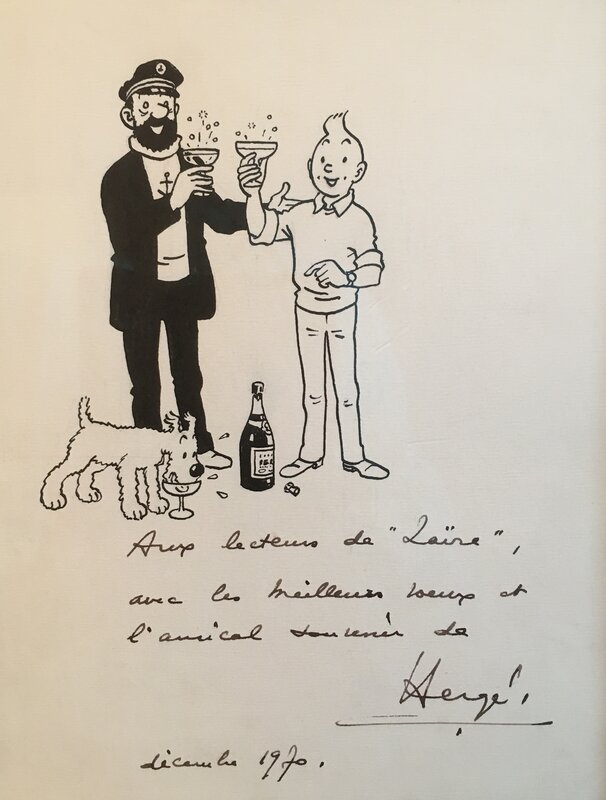 Aux lecteurs de "Zaïre",
avec les meilleurs voeux et
l'amical souvenir de
Hergé.
décembre 1970.